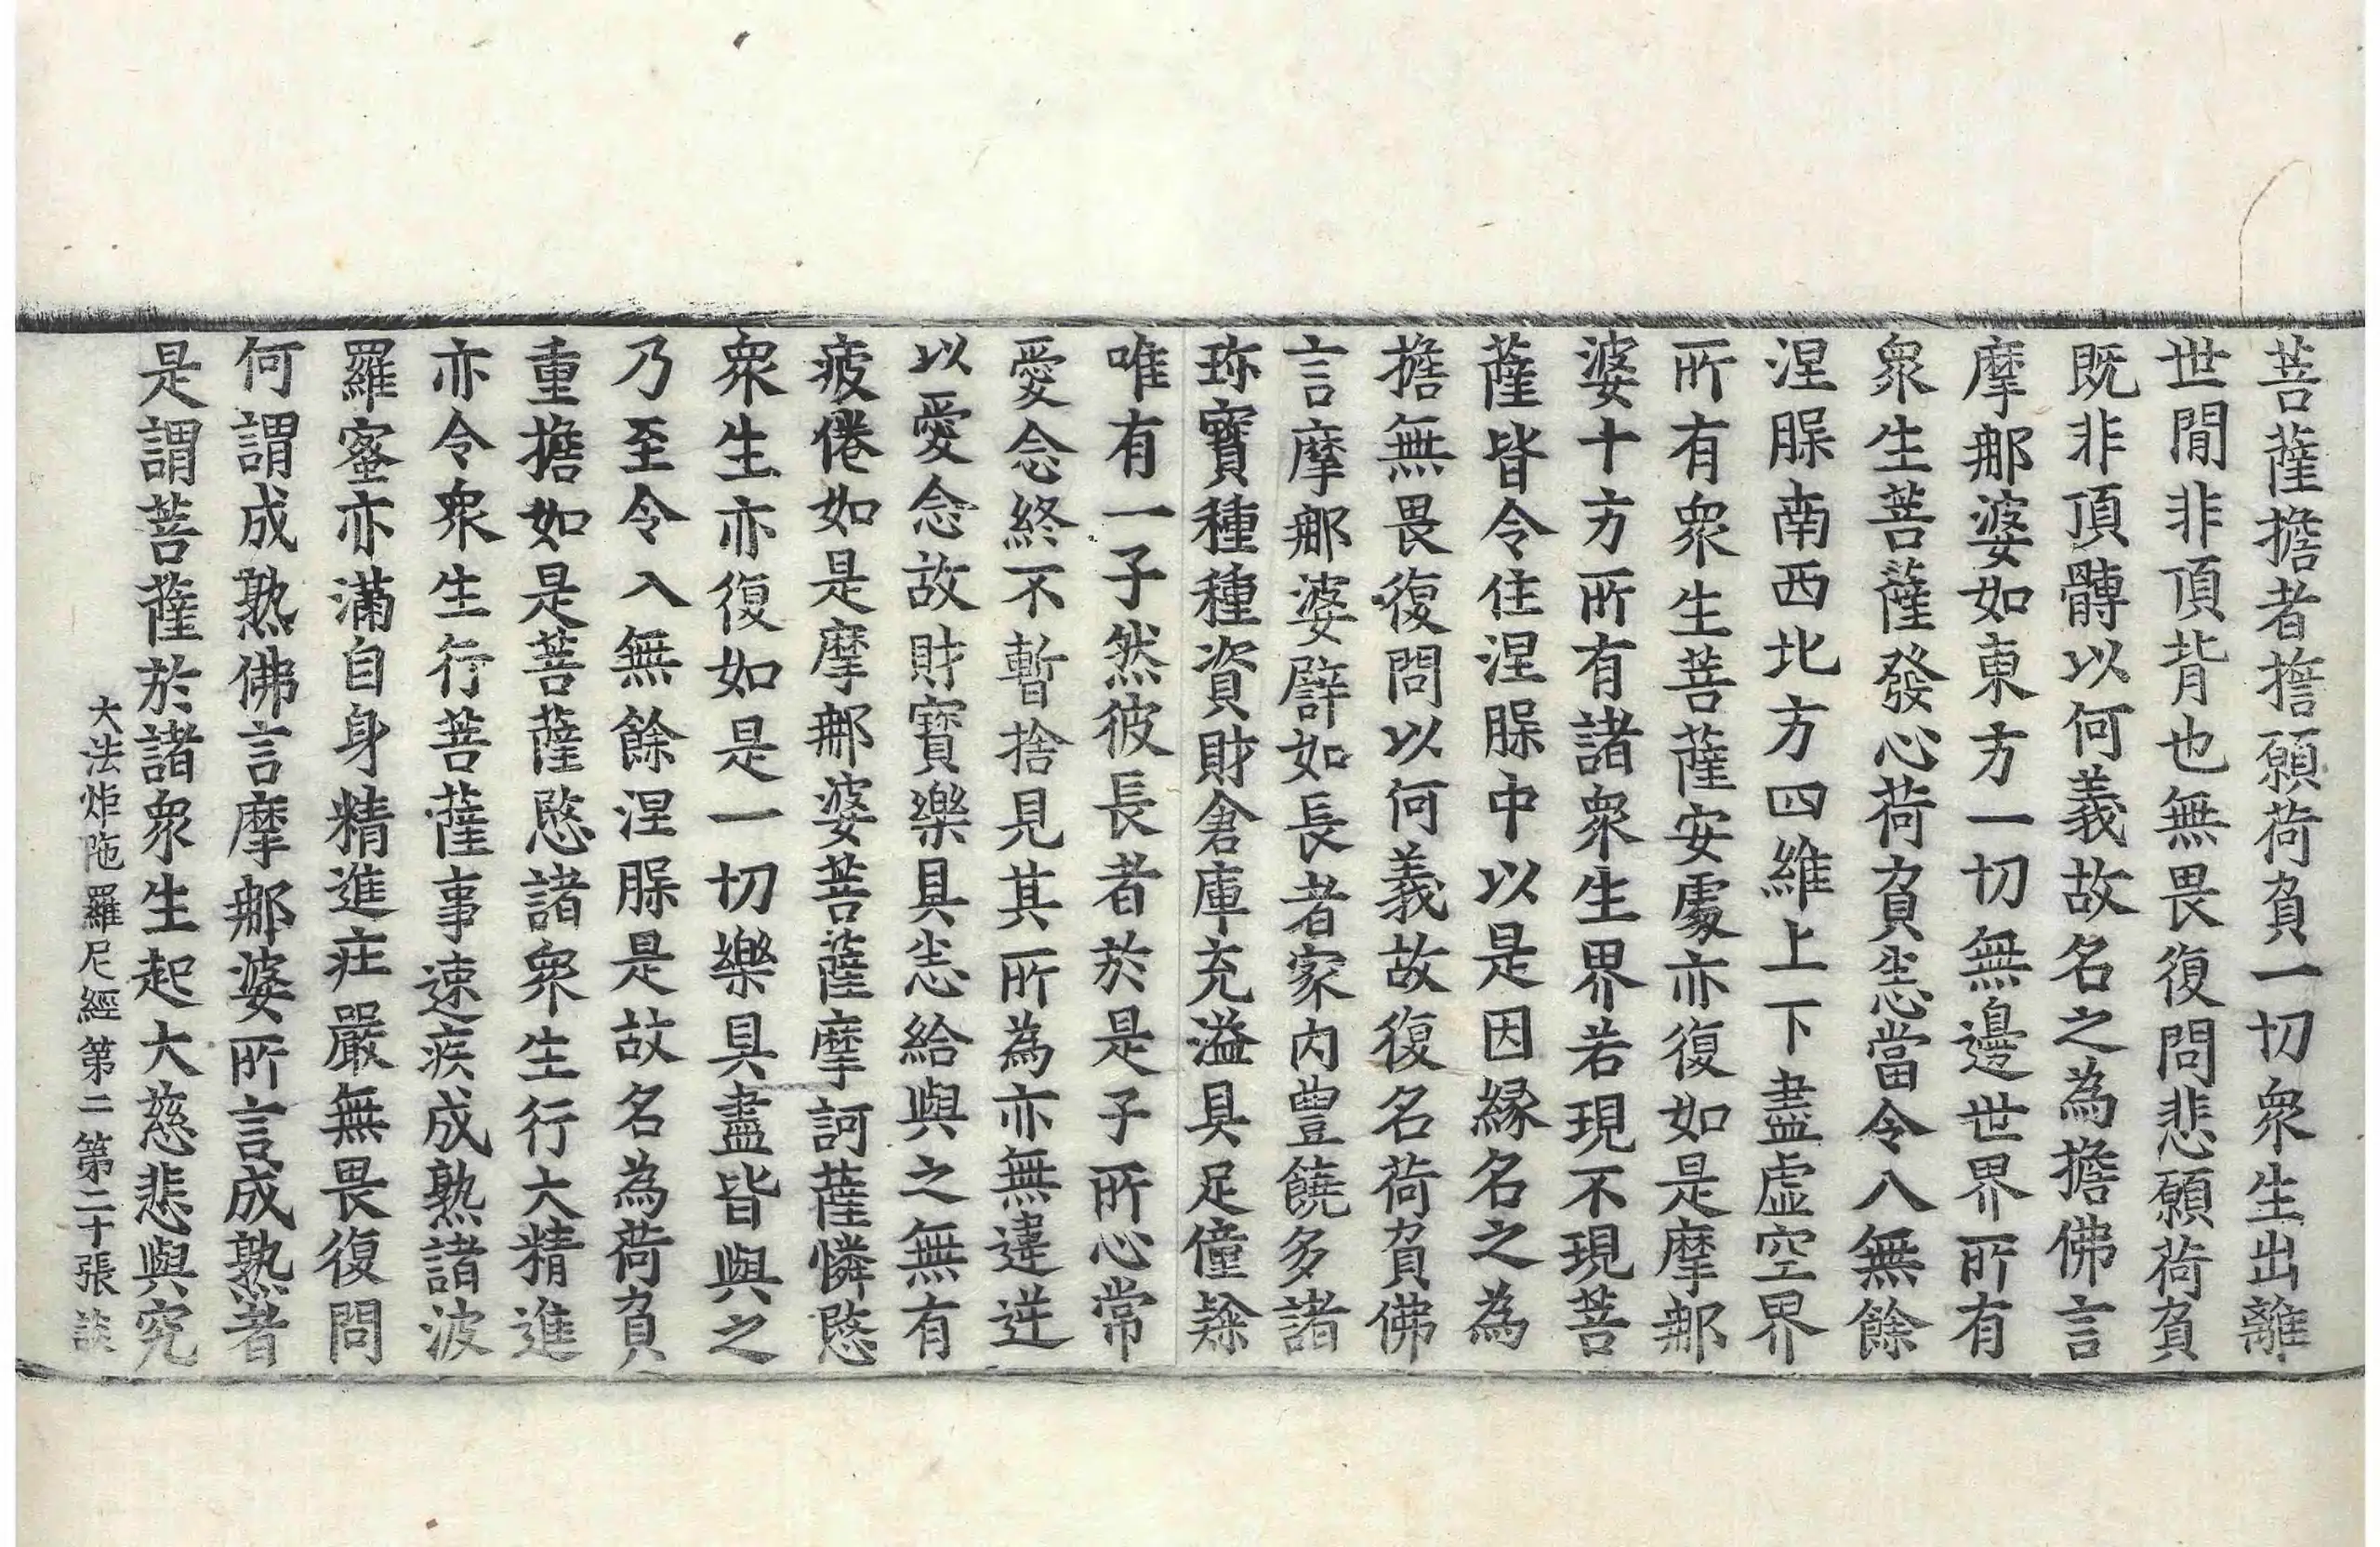 菩薩擔者擔願荷負一切衆生出離
世閒非頂背也無畏復問悲願荷負
既非頂髆以何義故名之為擔佛言
摩那婆如東方一切無邊世界所有
衆生菩薩發心荷負悉當令入無餘
涅槃南西北方四維上下盡虛空界
所有衆生菩薩安處亦復如是摩那
婆十方所有諸衆生界若現不現菩
薩皆令住涅槃中以是因縁名之為
擔無畏復問以何義故復名荷負佛
言摩那婆譬如長者家内豊饒多諸
珎寶種種資財倉庫充溢具足僮㒒
唯有一子然彼長者於是子所心常
愛念終不暫捨見其所為亦無違逆
以愛念故財寶樂具悉給與之無有
疲倦如是摩那婆菩薩摩訶薩憐愍
衆生亦復如是一切樂具盡皆與之
乃至令入無餘涅槃是故名為荷負
重擔如是菩薩愍諸衆生行大精進
亦令衆生行菩薩事速疾成熟諸波
羅蜜亦滿自身精進莊嚴無畏復問
何謂成熟佛言摩那婆所言成熟者
是謂菩薩於諸衆生起大慈悲與究
大法炬陁羅尼經第二第二十張 談